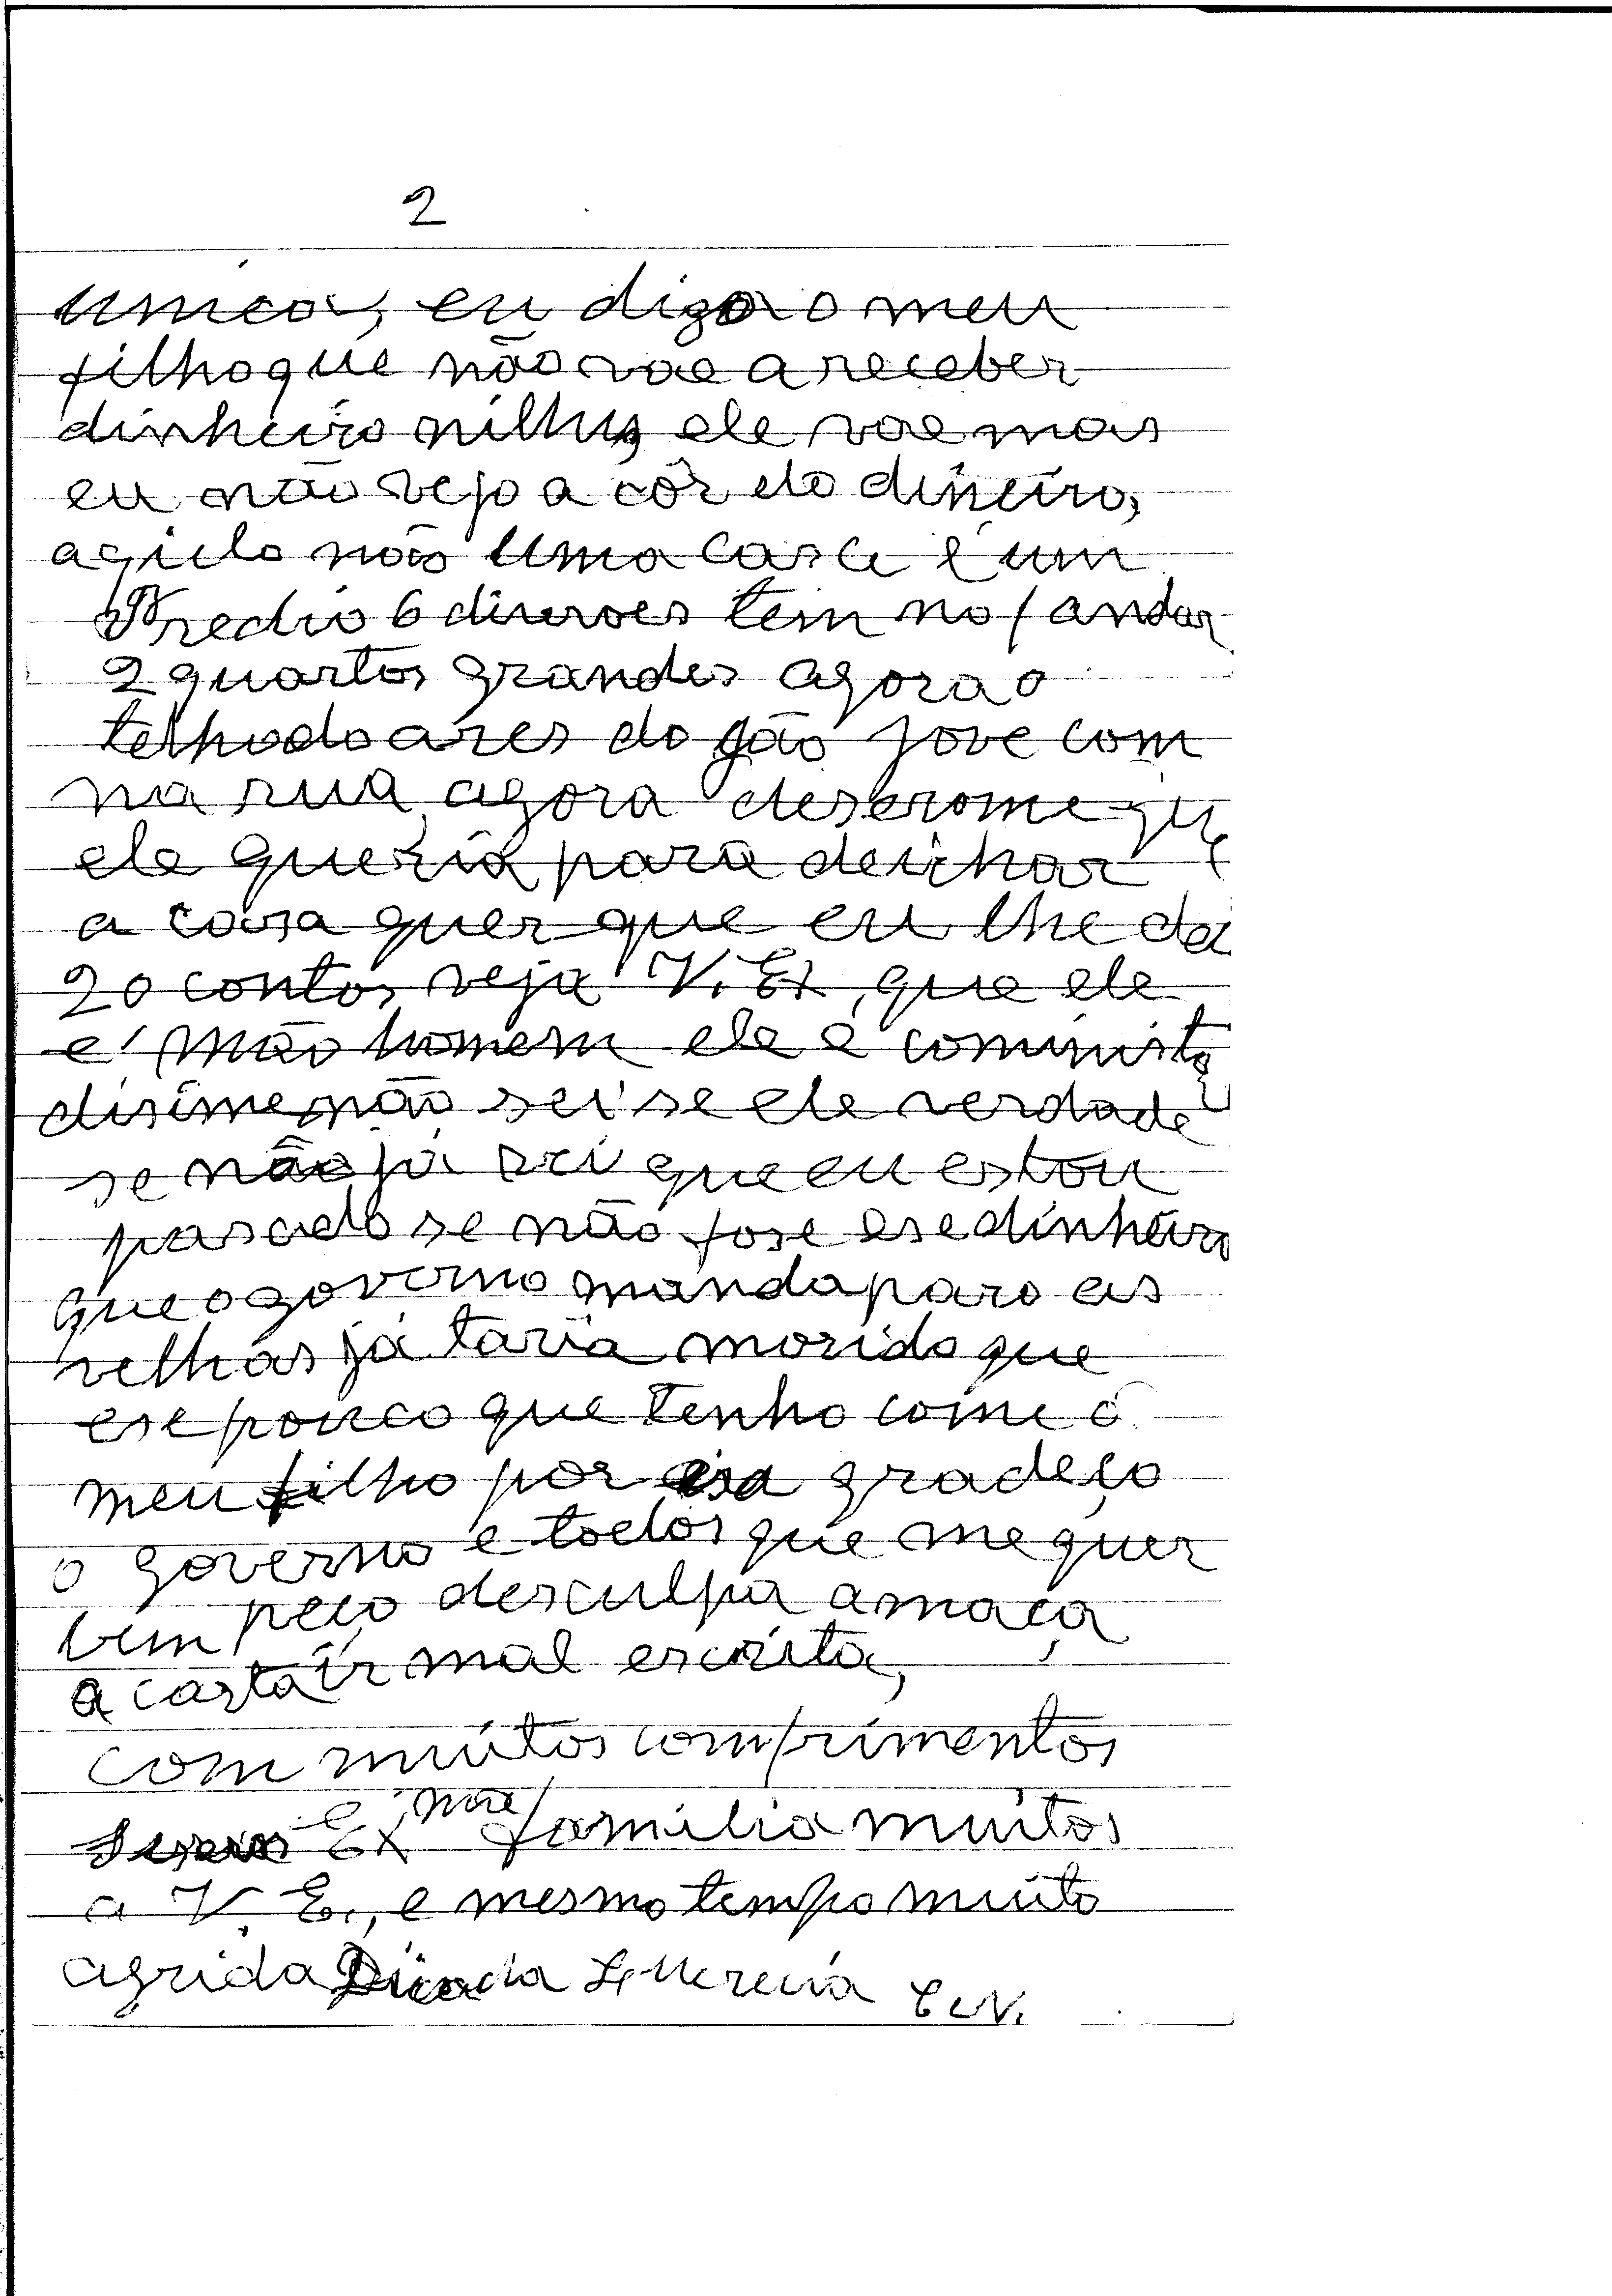 2
única, eu digo o meu
filho que não vae a receber
dinheiro nilhũ, ele vae mas
eu não vejo a côr do dinheiro,
aquelo não uma casa é um
Predio 6 divivoes tem no 1 andar
2 quartos grandes agora o
telhado ares do
na rua agora que
ele queria para deichar
a casa quer que eu lhe dei
20 contos, veja V. Ex, que ele
é mão homem ele é cominista
disime não sei se ele verdade
se não já sei que eu estou
pasado se não fose ese dinheiro
que o governo manda para as
velhas já taria morido que
ese pouco que tenho come o
meu filho por isa gradeço
o governo e todos que me quer
bem peço desculpa a maça
a carta ir mal escrita,
com muitos comprimentos
Ex familia muitos
a V. E., e mesmo tempo muito
agrida